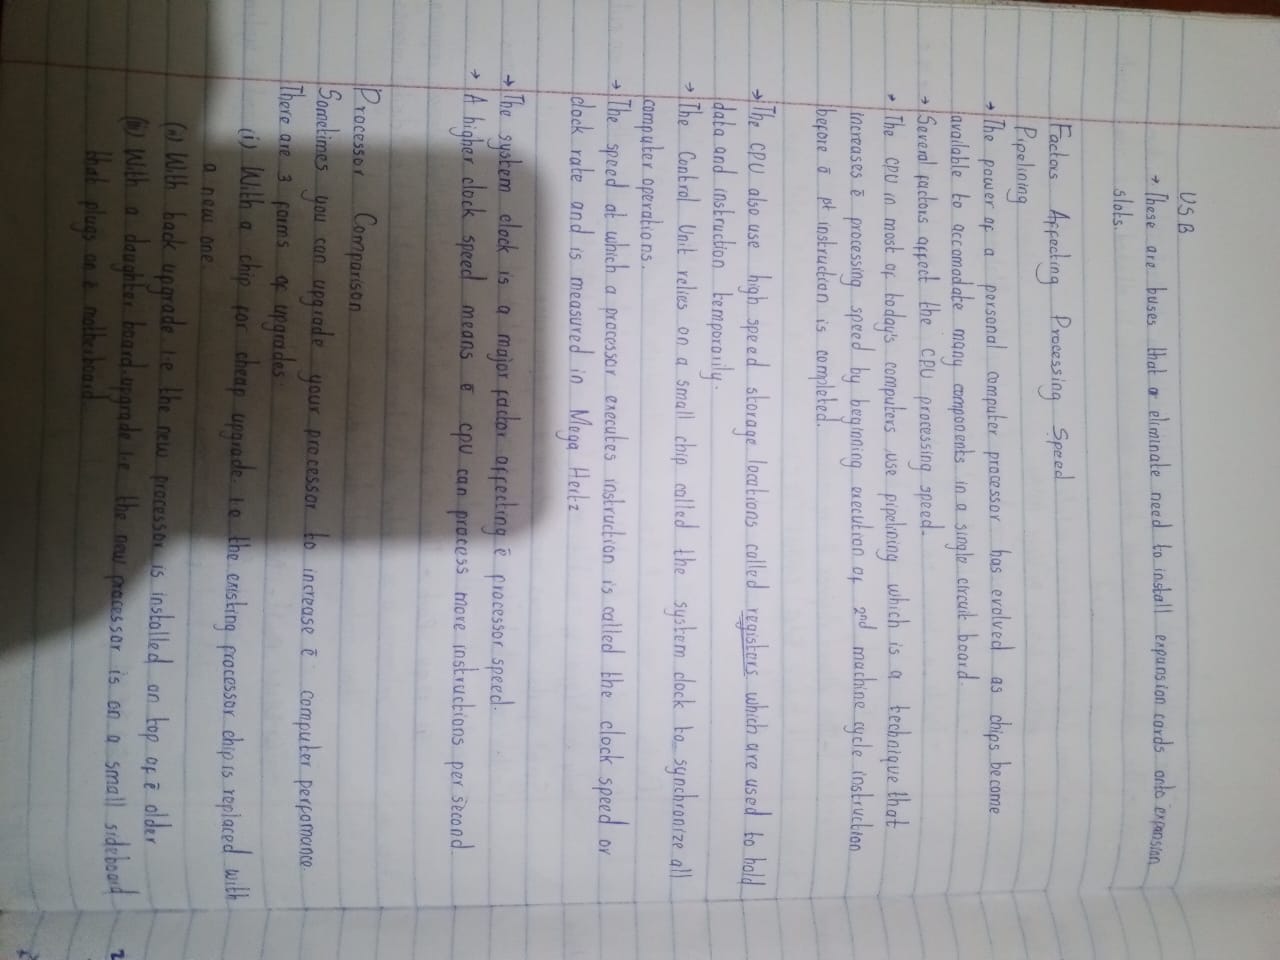 USB
→ These are buses that eliminate need to install expansion cards onto expansion
slots.
Factors Affecting Processing Speed
Pipelining
→ The power of a personal computer processor has evolved as chips become
available to accomodate many components in a single circuit board.
→ Several factors affect the CPU processing speed.
→ The CPU in most of today's computers use pipelining which is a technique that
increases ē processing speed by beginning execution of 2nd machine cycle instruction
before ō 1st instruction is completed.
→ The CPU also use high speed storage locations called registers which are used to hold
data and instruction temporarily.
→ The Control Unit relies on a small chip called the system clock to synchronize all
computer operations.
→ The speed at which a processor executes instruction is called the clock speed or
clock rate and is measured in Mega Hertz
→ The system clock is a major factor affecting ē processor speed.
→ A higher clock speed means ē cpu can process more instructions per second.
Processor Comparison
Sometimes you can upgrade your processor to increase ē computer perfomance.
There are 3 forms of upgrades.
(i) With a chip for cheap upgrade. i.e the existing processor chip is replaced with
a new one.
(ii) With back upgrade i.e the new processor is installed on top of ē older
(iii) With a daughter board upgrade i.e the new processor is on a small sideboard
that plugs on ē motherboard.